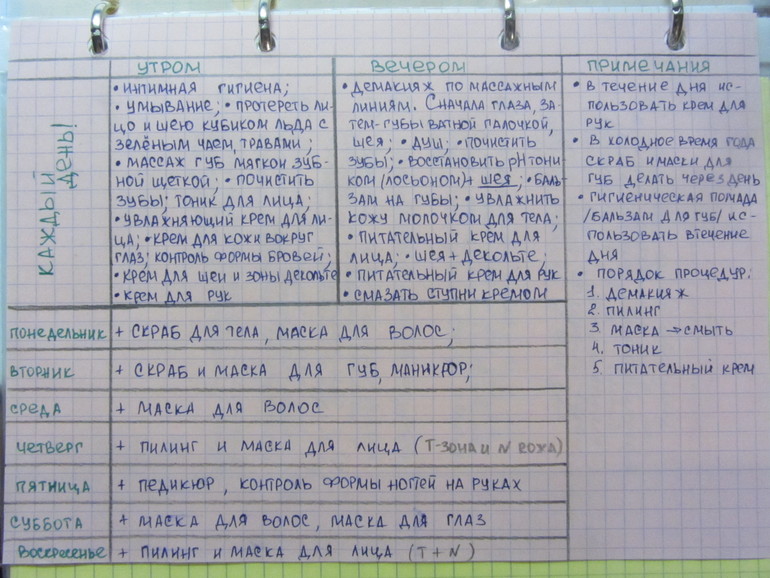 УТРОМ
ВЕЧЕРОМ
ПРИМЕЧАНИЯ
КАЖДЫЙ
ДЕНЬ!
• ИНТИМНАЯ ГИГИЕНА;
• УМЫВАНИЕ; • ПРОТЕРЕТЬ ЛИ-
ЦО И ШЕЮ КУБИКОМ ЛЬДА С
ЗЕЛЁНЫМ ЧАЕМ, ТРАВАМИ;
• МАССАЖ ГУБ МЯГКОЙ ЗУБ-
НОЙ ЩЕТКОЙ; • ПОЧИСТИТЬ
ЗУБЫ; ТОНИК ДЛЯ ЛИЦА;
• УВЛАЖНЯЮЩИЙ КРЕМ ДЛЯ ЛИ-
ЦА; • КРЕМ ДЛЯ КОЖИ ВОКРУГ
ГЛАЗ; КОНТРОЛЬ ФОРМЫ БРОВЕЙ;
• КРЕМ ДЛЯ ШЕИ И ЗОНЫ ДЕКОЛЬТЕ
• КРЕМ ДЛЯ РУК
• ДЕМАКИЯЖ ПО МАССАЖНЫМ
ЛИНИЯМ. СНАЧАЛА ГЛАЗА, ЗА-
ТЕМ-ГУБЫ ВАТНОЙ ПАЛОЧКОЙ,
ШЕЯ; • ДУШ; • ПОЧИСТИТЬ
ЗУБЫ; • ВОССТАНОВИТЬ pH ТОНИ-
КОМ (ЛОСЬОНОМ) + ШЕЯ; • БАЛЬ-
ЗАМ НА ГУБЫ; • УВЛАЖНИТЬ
КОЖУ МОЛОЧКОМ ДЛЯ ТЕЛА;
• ПИТАТЕЛЬНЫЙ КРЕМ ДЛЯ
ЛИЦА; • ШЕЯ + ДЕКОЛЬТЕ;
• ПИТАТЕЛЬНЫЙ КРЕМ ДЛЯ РУК
• СМАЗАТЬ СТУПНИ КРЕМОМ
• В ТЕЧЕНИЕ ДНЯ ИС-
ПОЛЬЗОВАТЬ КРЕМ ДЛЯ
РУК
• В ХОЛОДНОЕ ВРЕМЯ ГОДА
СКРАБ И МАСКИ ДЛЯ
ГУБ ДЕЛАТЬ ЧЕРЕЗ ДЕНЬ
• ГИГИЕНИЧЕСКАЯ ПОМАДА
/БАЛЬЗАМ ДЛЯ ГУБ/ ИС-
ПОЛЬЗОВАТЬ В ТЕЧЕНИЕ
ДНЯ
• ПОРЯДОК ПРОЦЕДУР:
1. ДЕМАКИЯЖ
2. ПИЛИНГ
3. МАСКА → СМЫТЬ
4. ТОНИК
5. ПИТАТЕЛЬНЫЙ КРЕМ
ПОНЕДЕЛЬНИК + СКРАБ ДЛЯ ТЕЛА, МАСКА ДЛЯ ВОЛОС;
ВТОРНИК + СКРАБ И МАСКА ДЛЯ ГУБ, МАНИКЮР;
СРЕДА + МАСКА ДЛЯ ВОЛОС
ЧЕТВЕРГ + ПИЛИНГ И МАСКА ДЛЯ ЛИЦА (Т-ЗОНА И N КОЖА)
ПЯТНИЦА + ПЕДИКЮР, КОНТРОЛЬ ФОРМЫ НОГТЕЙ НА РУКАХ
СУББОТА + МАСКА ДЛЯ ВОЛОС, МАСКА ДЛЯ ГЛАЗ
ВОСКРЕСЕНЬЕ + ПИЛИНГ И МАСКА ДЛЯ ЛИЦА (Т + N)